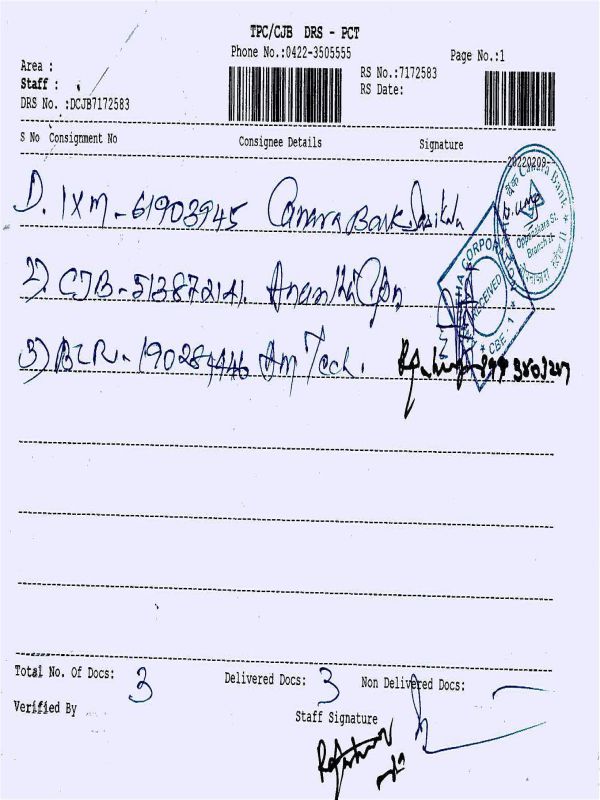 TPC/CJB DRS - PCT
Phone No.:0422-3505555
Page No.:1
Area :
RS No.:7172583
Staff :
RS Date:
DRS No. :DCJB7172583
S No Consignment No Consignee Details Signature
20220209
1). IXM-61903945 Canara Bank
2) CJB-513872141.
3) BLR-190284446 Am Tech.
Canara Bank
Oppanakara St.
Branch
CORPORAT
RECEIVED
* CBE - 1 *
Total No. Of Docs: 3 Delivered Docs: 3 Non Delivered Docs:
Verified By
Staff Signature